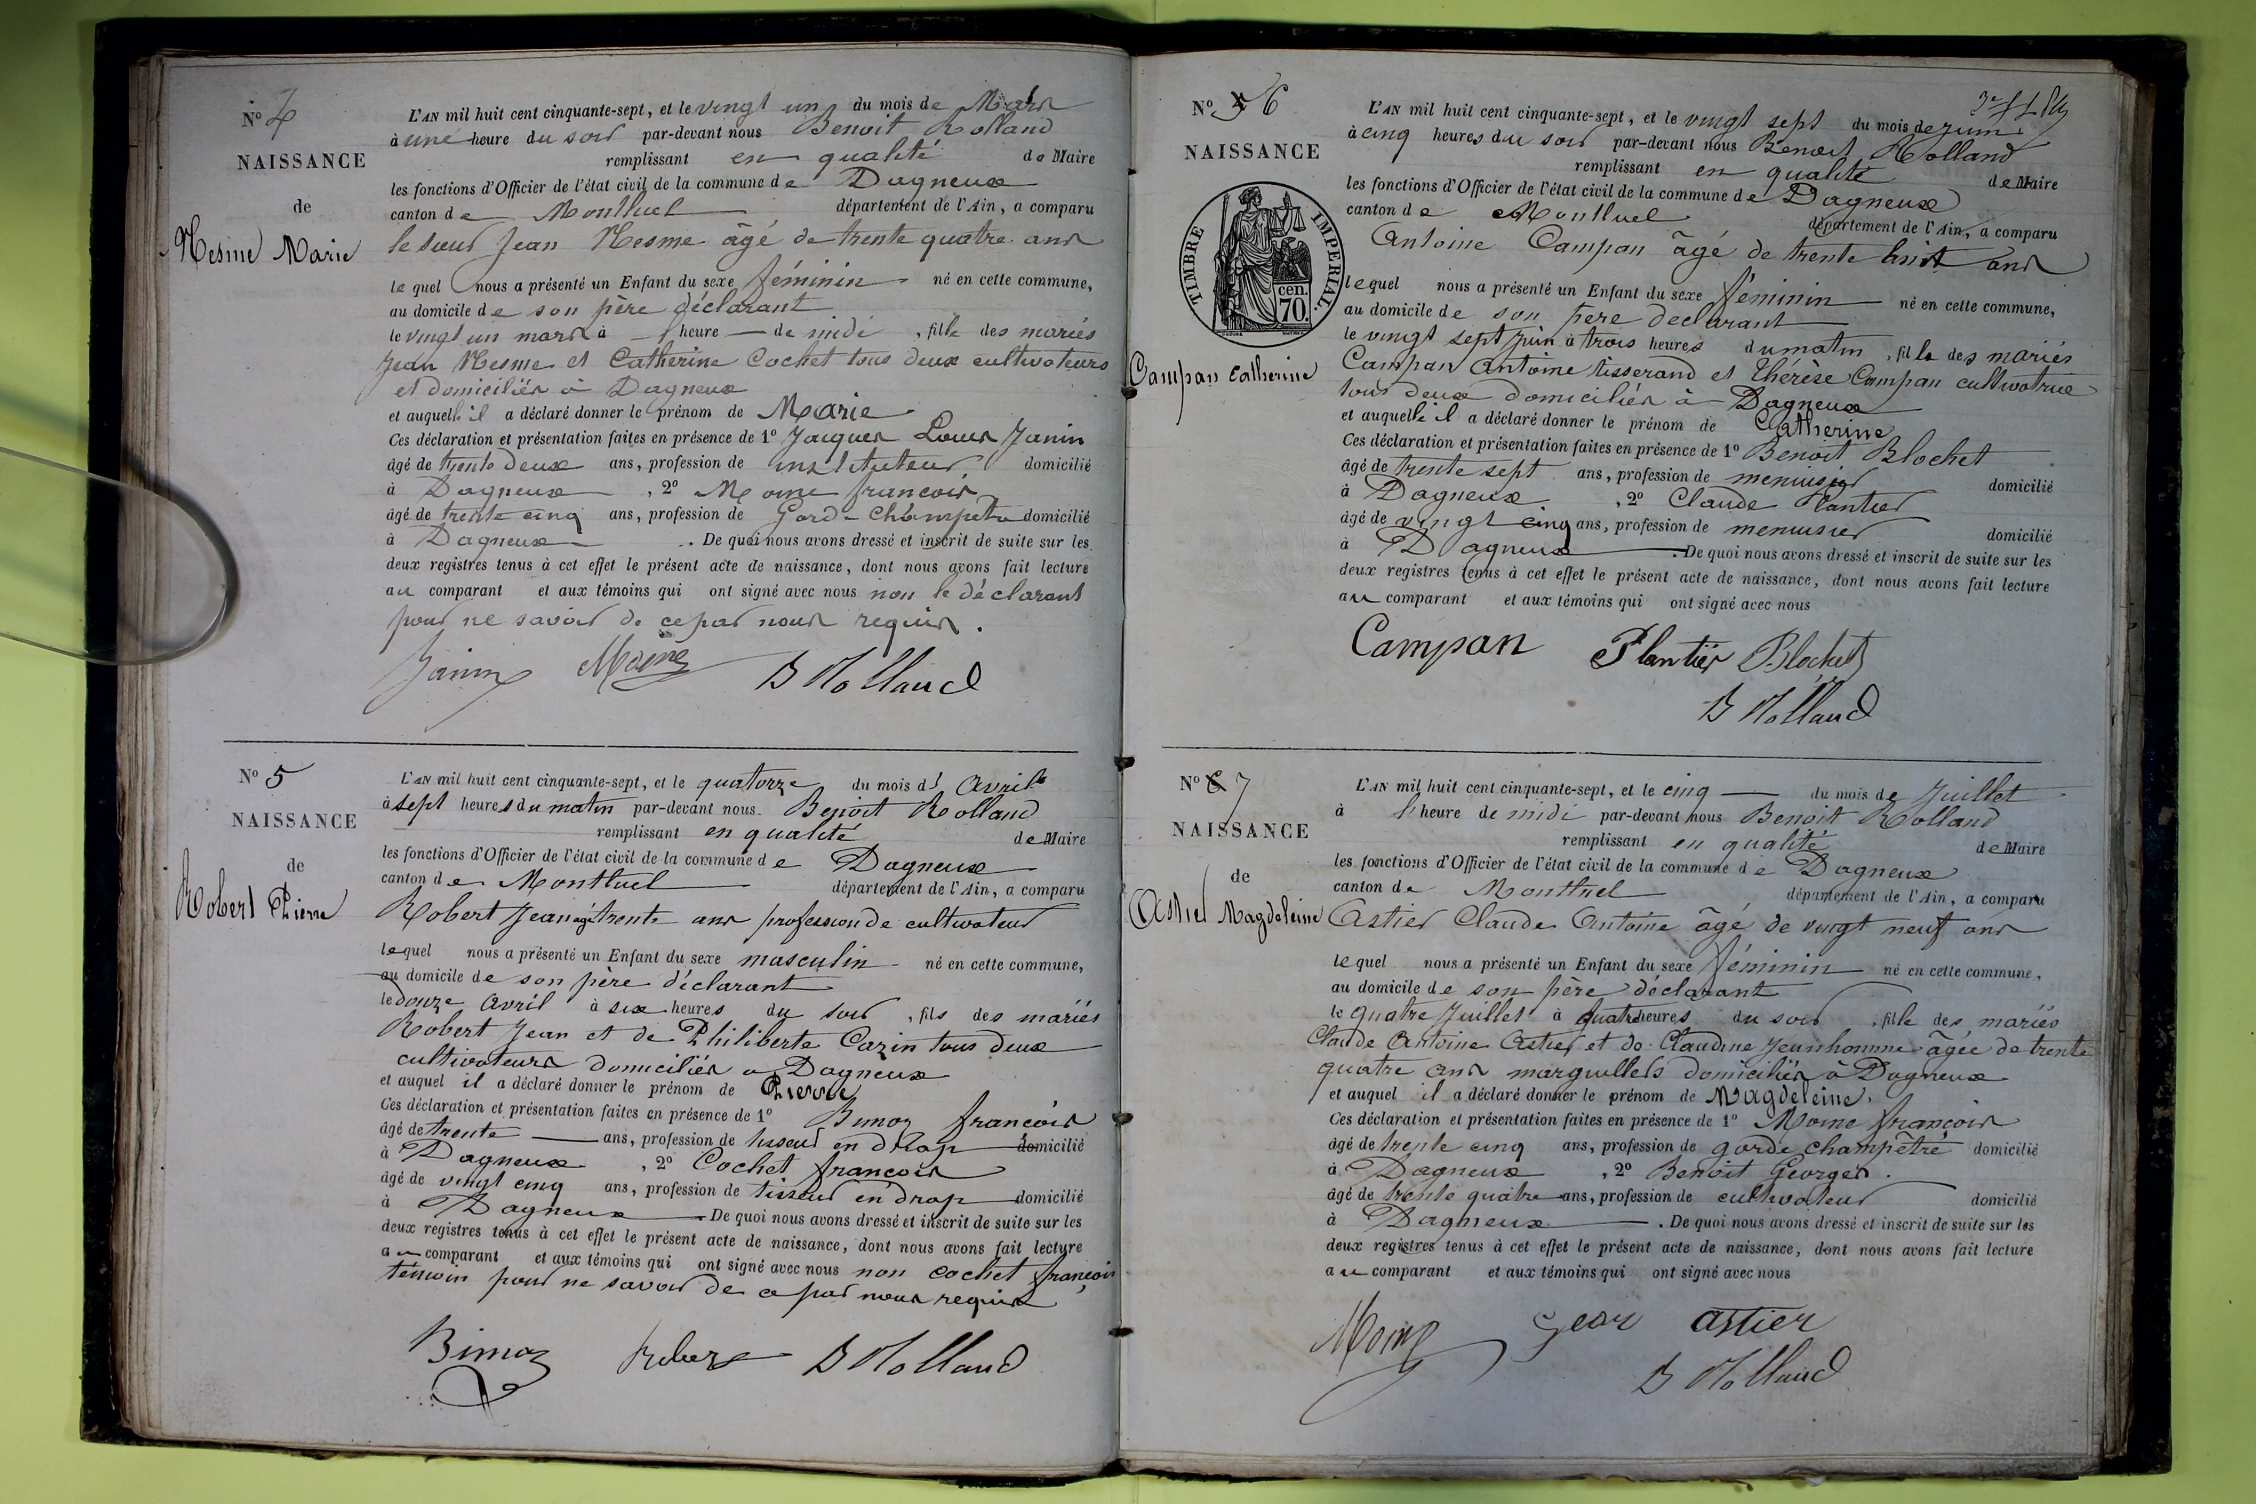 N° 4
NAISSANCE
de
Mesme Marie
L'AN mil huit cent cinquante-sept, et le vingt un du mois de Mars
à une heure du soir par-devant nous Benoit Rolland
remplissant en qualité de Maire
les fonctions d'Officier de l'état civil de la commune de Dagneux
canton de Montluel département de l'Ain, a comparu
le sieur Jean Mesme âgé de trente quatre ans
lequel nous a présenté un Enfant du sexe féminin né en cette commune,
au domicile de son père déclarant
le vingt un mars à heure de midi, fille des mariés
Jean Mesme et Catherine Cochet tous deux cultivateurs
et domiciliés à Dagneux
et auquelle il a déclaré donner le prénom de Marie
Ces déclaration et présentation faites en présence de 1° Jacques Louis Janin
âgé de trente deux ans, profession de instituteur domicilié
à Dagneux, 2° Moine françois
âgé de trente cinq ans, profession de Gard-Champetre domicilié
à Dagneux. De quoi nous avons dressé et inscrit de suite sur les
deux registres tenus à cet effet le présent acte de naissance, dont nous avons fait lecture
au comparant et aux témoins qui ont signé avec nous non le déclarant
pour ne savoir de ce par nous requis.
Janin Moine B Rolland
N° 5
NAISSANCE
de
Robert Pierre
L'AN mil huit cent cinquante-sept, et le quatorze du mois d' Avril
à sept heures du matin par-devant nous Benoit Rolland
remplissant en qualité de Maire
les fonctions d'Officier de l'état civil de la commune de Dagneux
canton de Montluel département de l'Ain, a comparu
Robert Jean âgé trente ans profession de cultivateur
lequel nous a présenté un Enfant du sexe masculin né en cette commune,
au domicile de son père déclarant
le douze avril à six heures du soir, fils des mariés
Robert Jean et de Philiberte Cazin tous deux
cultivateurs domiciliés a Dagneux
et auquel il a déclaré donner le prénom de Pierre
Ces déclaration et présentation faites en présence de 1° Bimoz françois
âgé de trente ans, profession de tisseur en drap domicilié
à Dagneux, 2° Cochet françois
âgé de vingt cinq ans, profession de tisseur en drap domicilié
à Dagneux. De quoi nous avons dressé et inscrit de suite sur les
deux registres tenus à cet effet le présent acte de naissance, dont nous avons fait lecture
au comparant et aux témoins qui ont signé avec nous non cochet françois
témoin pour ne savoir de ce par nous requis
Bimoz Robert B Rolland
N° 5 6
NAISSANCE
TIMBRE IMPERIAL.
cen.
70.
Campan Catherine
L'AN mil huit cent cinquante-sept, et le vingt sept du mois de juin
à cinq heures du soir par-devant nous Benoit Rolland
remplissant en qualité de Maire
les fonctions d'Officier de l'état civil de la commune de Dagneux
canton de Montluel département de l'Ain, a comparu
Antoine Campan âgé de trente huit ans
lequel nous a présenté un Enfant du sexe féminin né en cette commune,
au domicile de son père declarant
le vingt sept juin à trois heures du matin, fille des mariés
Campan Antoine tisserand et Thérèse Campan cultivatrice
tous deux domiciliés à Dagneux
et auquelle il a déclaré donner le prénom de Catherine
Ces déclaration et présentation faites en présence de 1° Benoit Blochet
âgé de trente sept ans, profession de menuisier domicilié
à Dagneux, 2° Claude Plantier
âgé de vingt cinq ans, profession de menuisier domicilié
à Dagneux. De quoi nous avons dressé et inscrit de suite sur les
deux registres tenus à cet effet le présent acte de naissance, dont nous avons fait lecture
au comparant et aux témoins qui ont signé avec nous
Campan Plantier Blochet
B Rolland
N° 6 7
NAISSANCE
de
Astier Magdeleine
L'AN mil huit cent cinquante-sept, et le cinq du mois de Juillet
à l'heure de midi par-devant nous Benoit Rolland
remplissant en qualité de Maire
les fonctions d'Officier de l'état civil de la commune de Dagneux
canton de Montluel département de l'Ain, a comparu
Astier Claude Antoine âgé de vingt neuf ans
lequel nous a présenté un Enfant du sexe féminin né en cette commune,
au domicile de son père déclarant
le quatre Juillet à quatre heures du soir, fille des mariés
Claude Antoine Astier et de Claudine Jeanhomme âgée de trente
quatre ans marguillers domiciliés à Dagneux
et auquel il a déclaré donner le prénom de Magdeleine.
Ces déclaration et présentation faites en présence de 1° Moine françois
âgé de trente cinq ans, profession de garde champêtre domicilié
à Dagneux, 2° Benoit Georges.
âgé de trente quatre ans, profession de cultivateur domicilié
à Dagneux. De quoi nous avons dressé et inscrit de suite sur les
deux registres tenus à cet effet le présent acte de naissance, dont nous avons fait lecture
au comparant et aux témoins qui ont signé avec nous
Moine Geor Astier
B Rolland